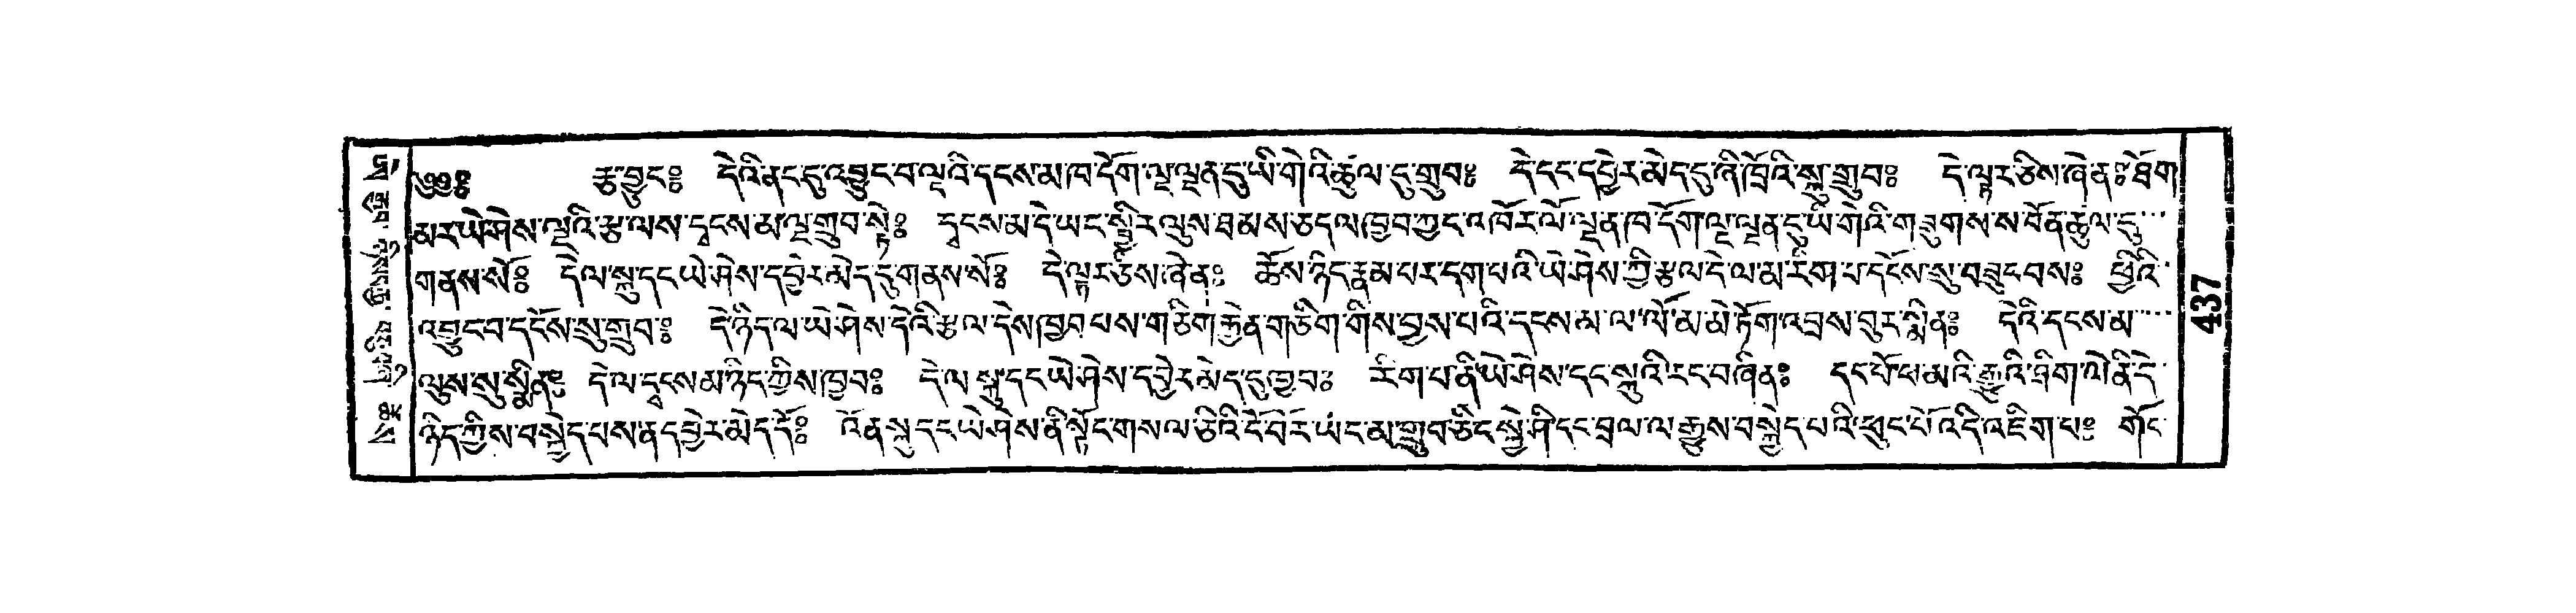 ༄༅༔ རྩ་བྱུང༔ དེའི་ནང་དུ་འབྱུང་བ་ལྔའི་དྭངས་མ་ཁ་དོག་ལྔ་ལྡན་དུ་ཡི་གེའི་ཚུལ་དུ་གྲུབ༔ དེ་དང་དབྱེར་མེད་དུ་ཞི་ཁྲོའི་སྐུ་གྲུབ༔ དེ་ལྟར་ཅིས་ཞེ་ན༔ ཐོག
མར་ཡེ་ཤེས་ལྔའི་རྩལ་ལས་དྭངས་མ་ལྔ་གྲུབ་སྟེ༔ དྭངས་མ་དེ་ཡང་སྤྱིར་ལུས་ཐམས་ཅད་ལ་ཁྱབ་ཀྱང་འཁོར་ལོ་ལྡན་ཁ་དོག་ལྔ་ལྡན་དུ་ཡི་གེའི་གཟུགས་ས་བོན་ཚུལ་དུ
གནས་སོ༔ དེ་ལ་སྐུ་དང་ཡེ་ཤེས་དབྱེར་མེད་དུ་གནས་སོ༔ དེ་ལྟར་ཅིས་ཞེ་ན༔ ཆོས་ཉིད་རྣམ་པར་དག་པའི་ཡེ་ཤེས་ཀྱི་རྩལ་དེ་ལ་མ་རིག་པ་དངོས་སུ་བཟུང་བས༔ ཕྱིའི
འབྱུང་བ་དངོས་སུ་གྲུབ༔ དེ་ཉིད་ལ་ཡེ་ཤེས་དེའི་རྩལ་དེས་ཁྱབ་པས་གཅིག་རྐྱེན་གཅིག་གིས་བྱས་པའི་དངས་མ་ལ་ལོ་མ་མེ་ཏོག་འབྲས་བུར་སྨིན༔ དེའི་དངས་མ
ལུས་སུ་སྨིན༔ དེ་ལ་དྭངས་མ་ཉིད་ཀྱིས་ཁྱབ༔ དེ་ལ་སྐུ་དང་ཡེ་ཤེས་དབྱེར་མེད་དུ་ཁྱབ༔ རིག་པ་ནི་ཡེ་ཤེས་དང་སྐུའི་རང་བཞིན༔ དང་པོ་ཕ་མའི་རྒྱུའི་ཐིག་ལེ་ནི་དེ
ཉིད་ཀྱིས་བསྐྱེད་པས་ན་དབྱེར་མེད་དོ༔ འོན་སྐུ་དང་ཡེ་ཤེས་ནི་སྟོང་གསལ་ཅིའི་ངོ་བོར་ཡང་མ་གྲུབ་ཅིང་སྐྱེ་ཤི་དང་བྲལ་ལ་རྒྱུས་བསྐྱེད་པའི་ཕུང་པོ་འདི་འཇིག་པ༔ གོང
734